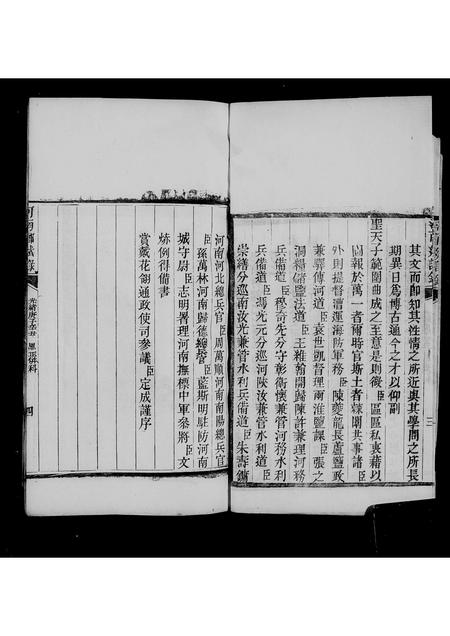 其文而即知其性情之所近與其學問之所長
期異日為博古通今之才以仰副
聖天子範圍曲成之至意是則後臣區區私衷藉以
圖報於萬一者爾時官斯土者隸闈共事諸臣
外則提督漕運海防軍務臣陳夔龍長蘆鹽政
兼驛傳河道臣袁世凱督理兩淮鹽課臣張之
洞糧儲鹽法道臣王維翰開歸陳許兼理河務
兵備道臣穆奇先分守彰衛懷兼管河務水利
兵備道臣馮光元分巡河陝汝兼管水利道臣
崇繕分巡南汝光兼管水利兵備道臣朱壽鏞
河南河北總兵官臣周萬順河南南陽總兵官
臣孫萬林河南歸德總管臣藍斯明駐防河南
城守尉臣志明署理河南撫標中軍參將臣文
炳例得備書
賞戴花翎通政使司參議臣定成謹序
河南鄉試錄
光緒庚子辛丑 恩正併科
四
河南鄉試錄
三